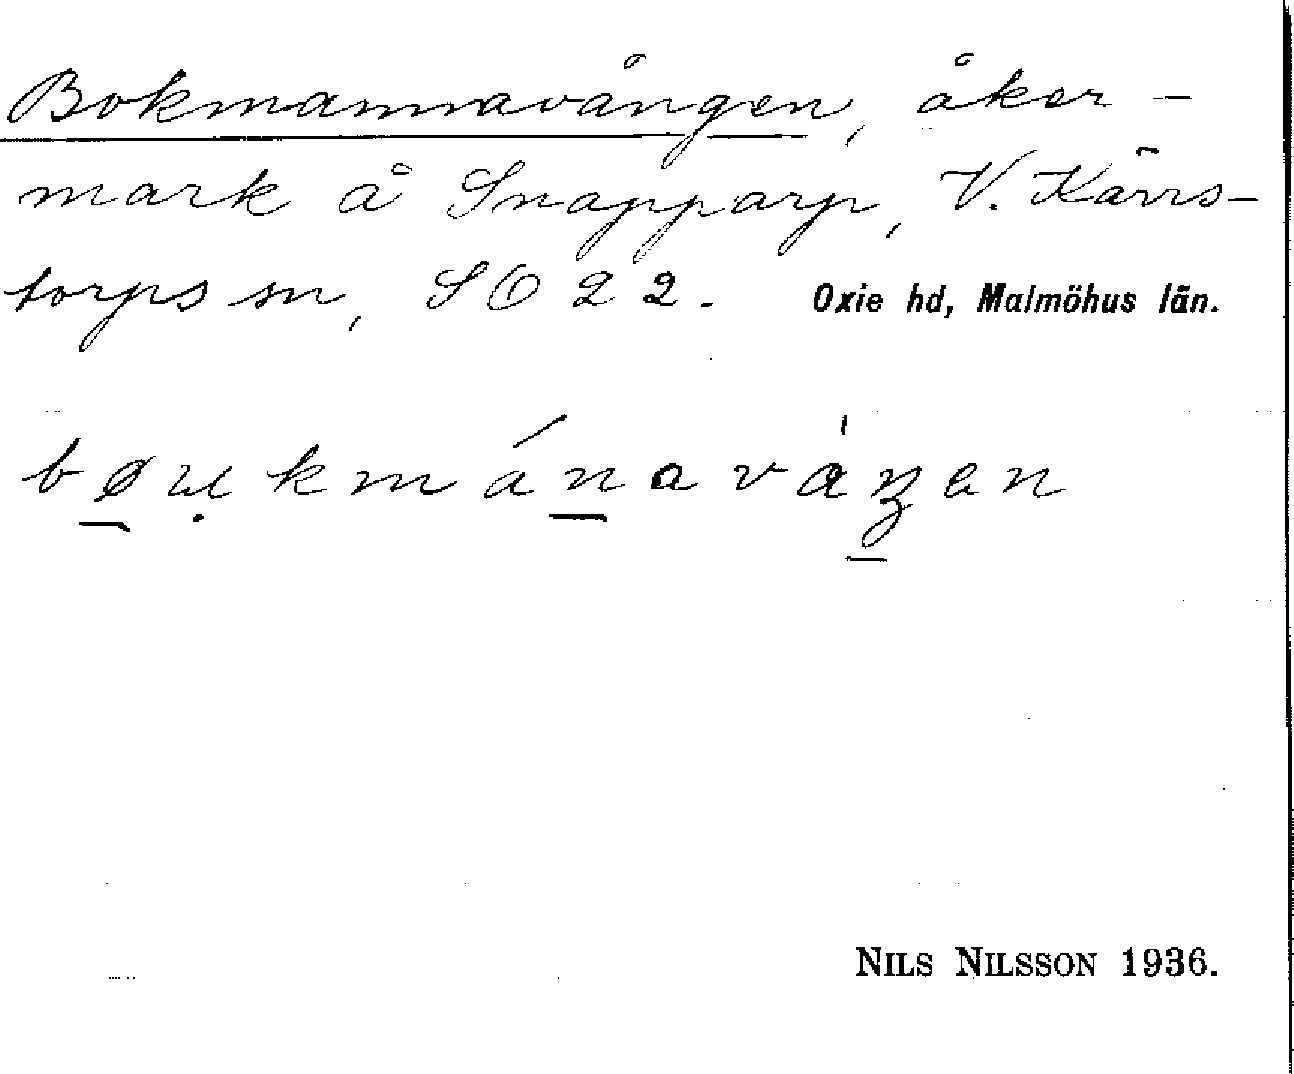 Bokmannavången, åker-
mark å Snapparp, V. Kärrs-
torps sn, SO 22. Oxie hd, Malmöhus län.
bøụkmánavȧŋen
NILS NILSSON 1936.